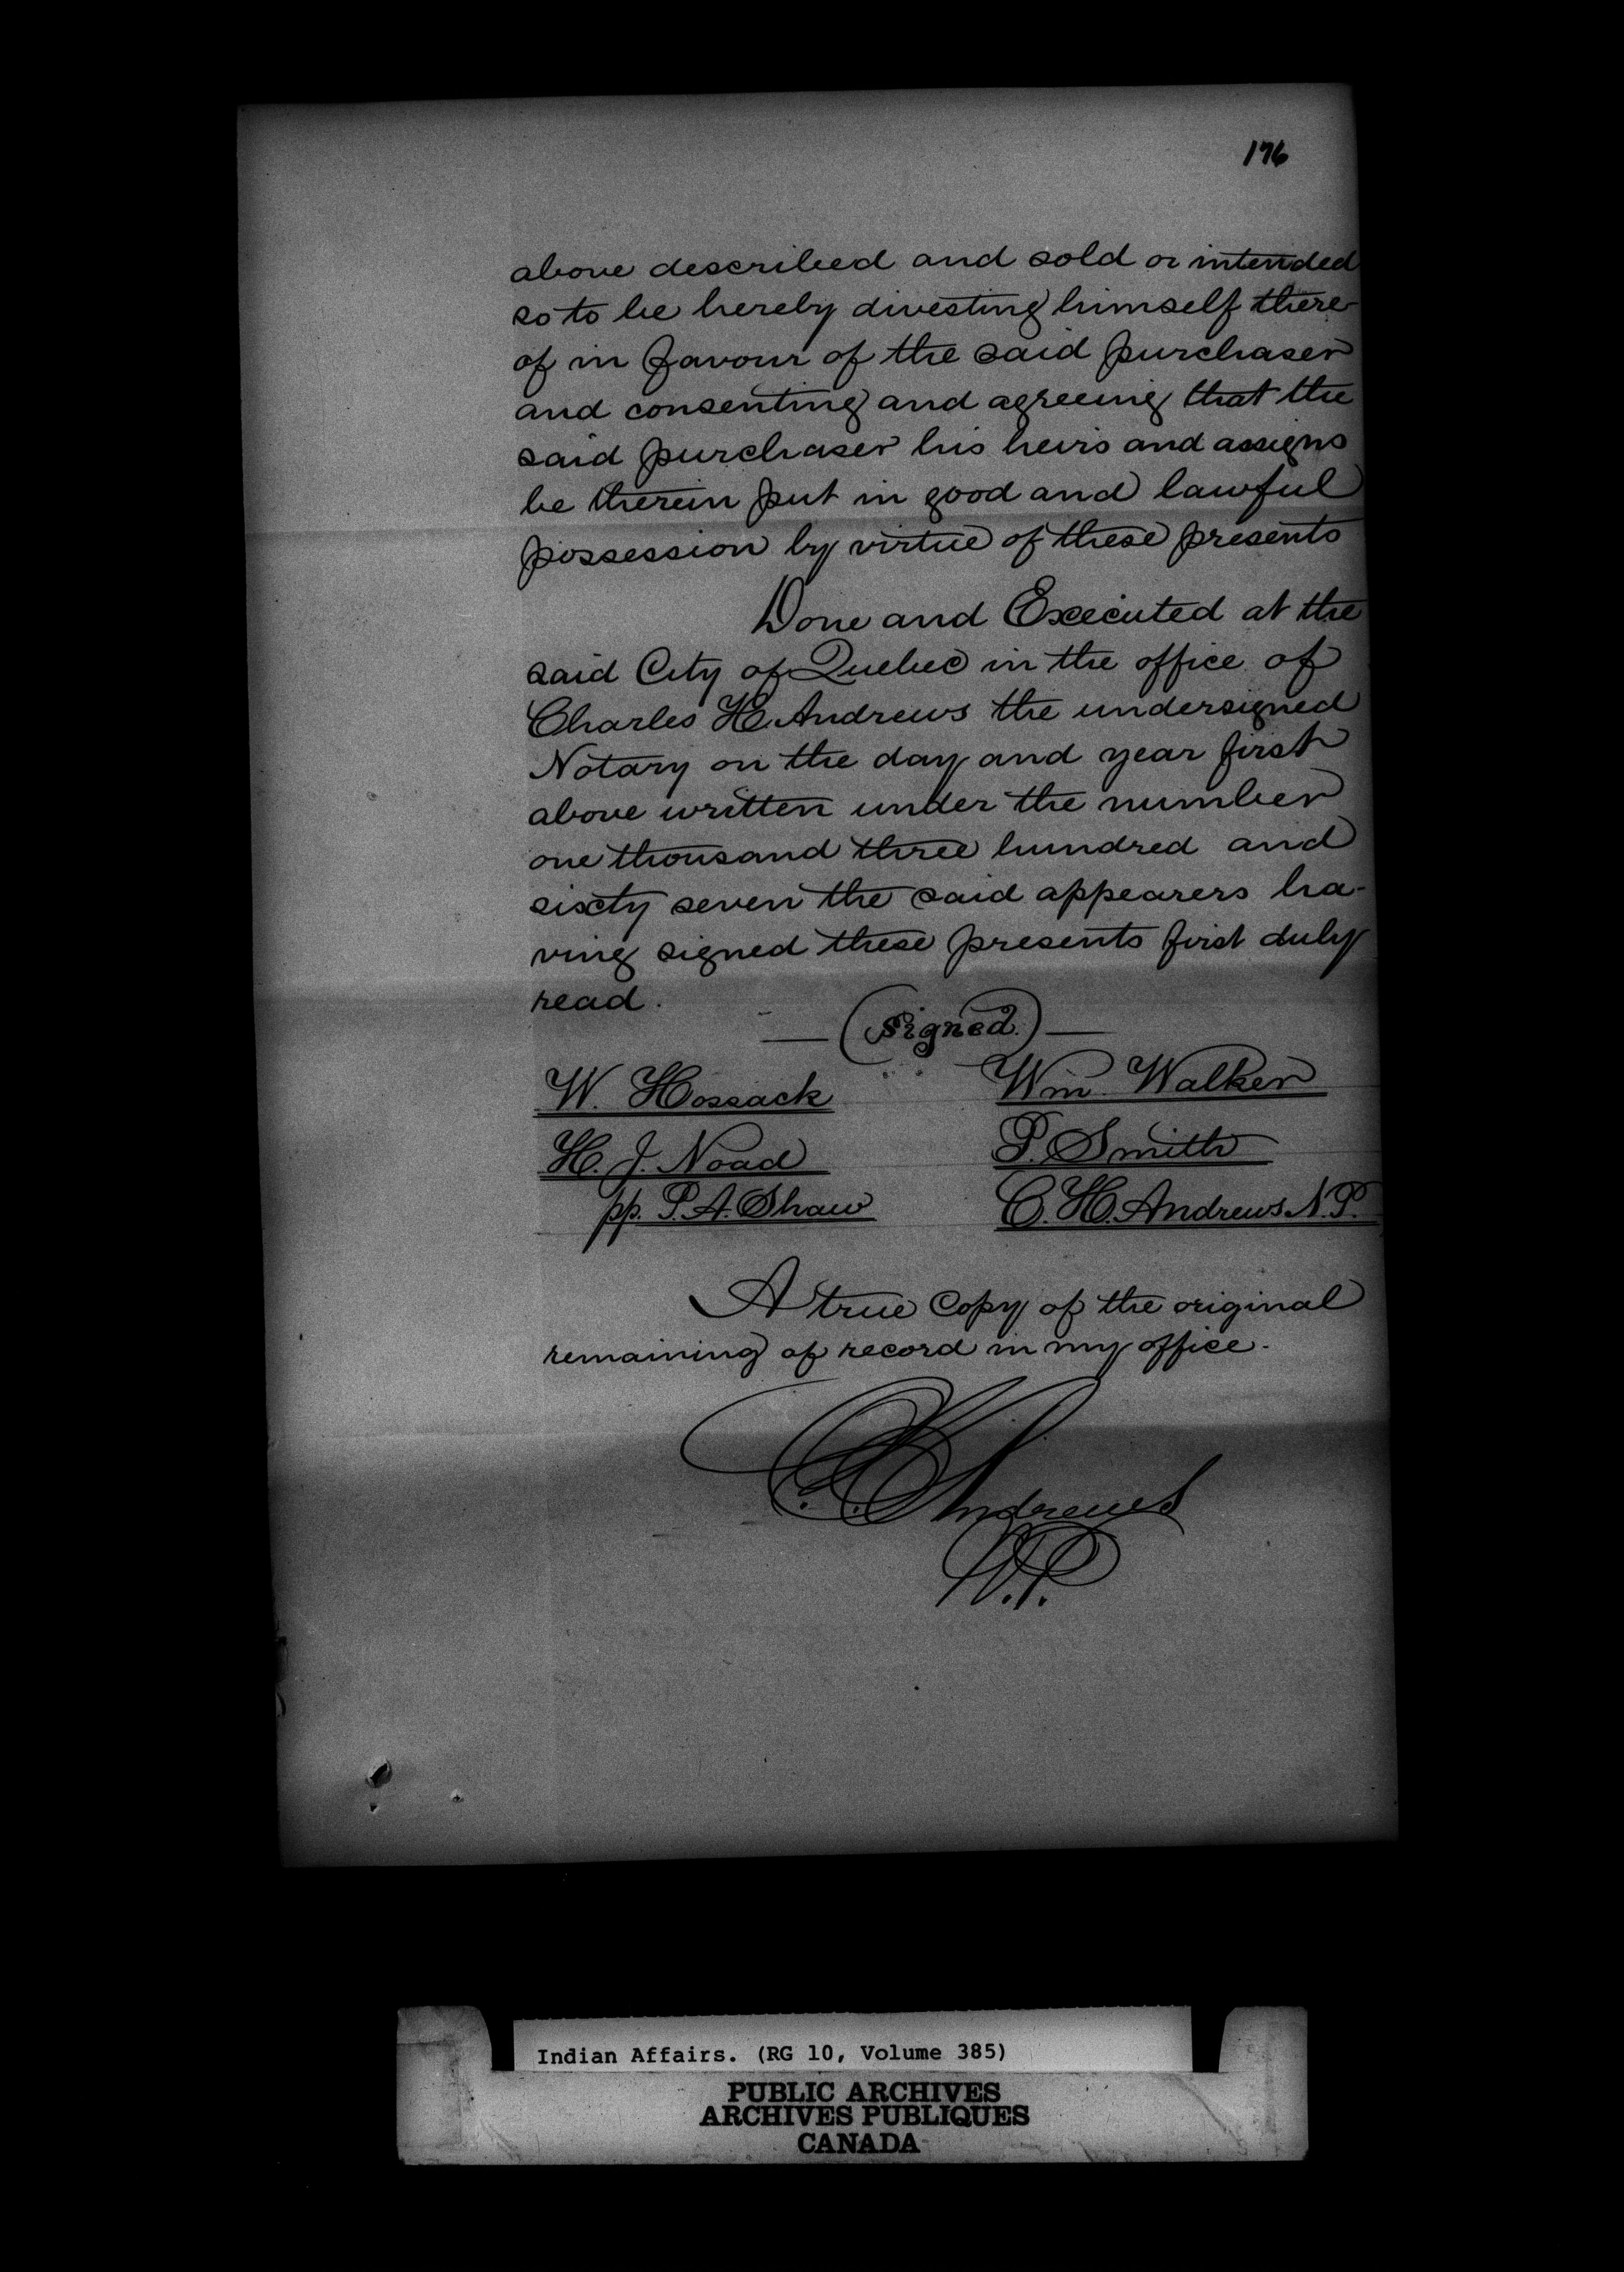 176
above described and sold or intended
so to be hereby divesting himself there
of in favour of the said purchaser
and consenting and agreeing that the
said purchaser his heirs and assigns
be therein put in good and lawful
possession by virtue of these presents
Done and Executed at the
said City of Quebec in the office of
Charles H. Andrews the undersigned
Notary on the day and year first
above written under the number
one thousand three hundred and
sixty seven the said appearers ha-
ving signed these presents first duly
read.
(Signed.)
W. Hossack Wm. Walker
H. J. Noad P. Smith
pp. P. A. Shaw C. H. Andrews N. P.
A true Copy of the original
remaining of record in my office.
C. H. Andrews
N. P.
Indian Affairs. (RG 10, Volume 385)
PUBLIC ARCHIVES
ARCHIVES PUBLIQUES
CANADA